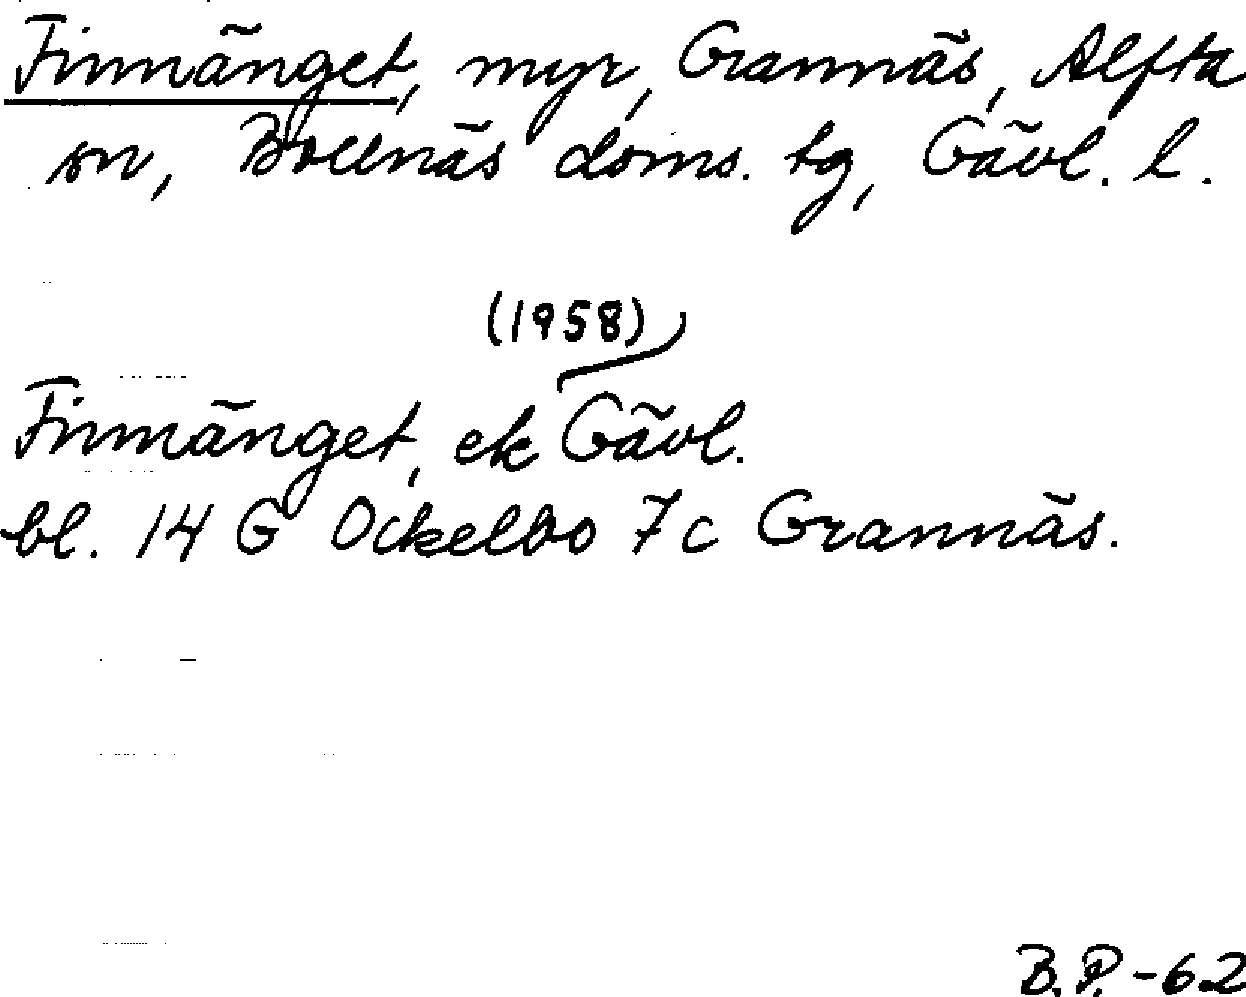 Finnänget, myr, Grannäs, Alfta
sn, Bollnäs doms. tg, Gävl. l.
(1958)
Finnänget, ek Gävl.
bl. 14 G Ockelbo 7c Grannäs.
B.P.-62